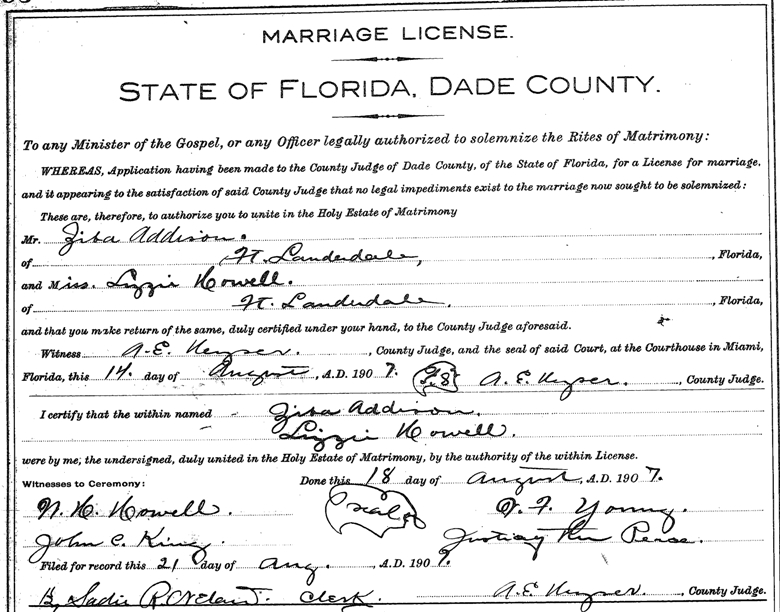 MARRIAGE LICENSE.
STATE OF FLORIDA, DADE COUNTY.
To any Minister of the Gospel, or any Officer legally authorized to solemnize the Rites of Matrimony:
WHEREAS, Application having been made to the County Judge of Dade County, of the State of Florida, for a License for marriage,
and it appearing to the satisfaction of said County Judge that no legal impediments exist to the marriage now sought to be solemnized:
These are, therefore, to authorize you to unite in the Holy Estate of Matrimony
Mr. Ziba Addison.
of Ft. Lauderdale, , Florida,
and Miss. Lizzie Howell.
of Ft. Lauderdale. , Florida,
and that you make return of the same, duly certified under your hand, to the County Judge aforesaid.
Witness A. E. Heyser. , County Judge, and the seal of said Court, at the Courthouse in Miami,
Florida, this 14. day of August , A.D. 1907. A. E. Heyser. , County Judge.
I certify that the within named Ziba Addison.
Lizzie Howell.
were by me, the undersigned, duly united in the Holy Estate of Matrimony, by the authority of the within License.
Witnesses to Ceremony: Done this 18 day of August , A.D. 1907.
N. H. Howell. Seal Young.
John C. King. Peace.
Filed for record this 21 day of Aug. , A.D. 1907.
By Sadie Clerk. A. E. Heyser. County Judge.